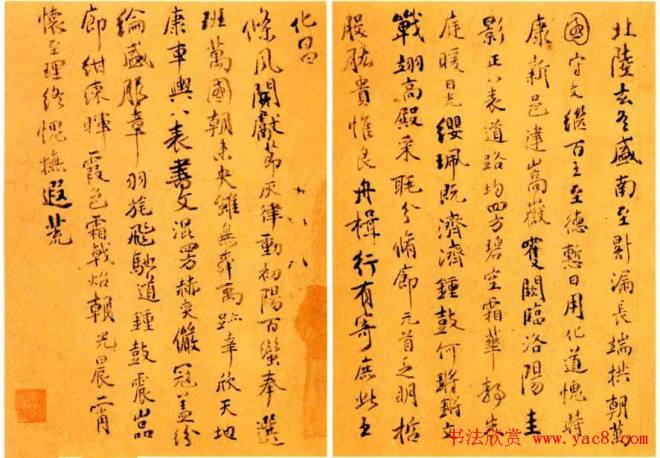 北陸玄冬盛南至晷漏長端拱朝萬
國守文繼百王至德慙日用化道愧時
康新邑建嵩嶽雙闕臨洛陽圭
影正八表道路均四方碧空霜華靜朱
庭暖日光纓珮既濟濟鍾鼓何鏘鏘文
戟翊高殿采眊分脩廊元首乏明哲
股肱貴惟良舟楫行有寄庶此王
化昌
條風開獻節灰律動初陽百蠻奉
萬國朝未央雖無舜禹跡幸欣天地
康車八表書文混四方赫奕儼冠蓋紛
綸盛服章羽旄飛馳道鍾鼓震嵓
廊組練輝霞色霜戟焰朝光晨宵
懷至理終愧撫遐荒
书法欣赏
www.yac8.com